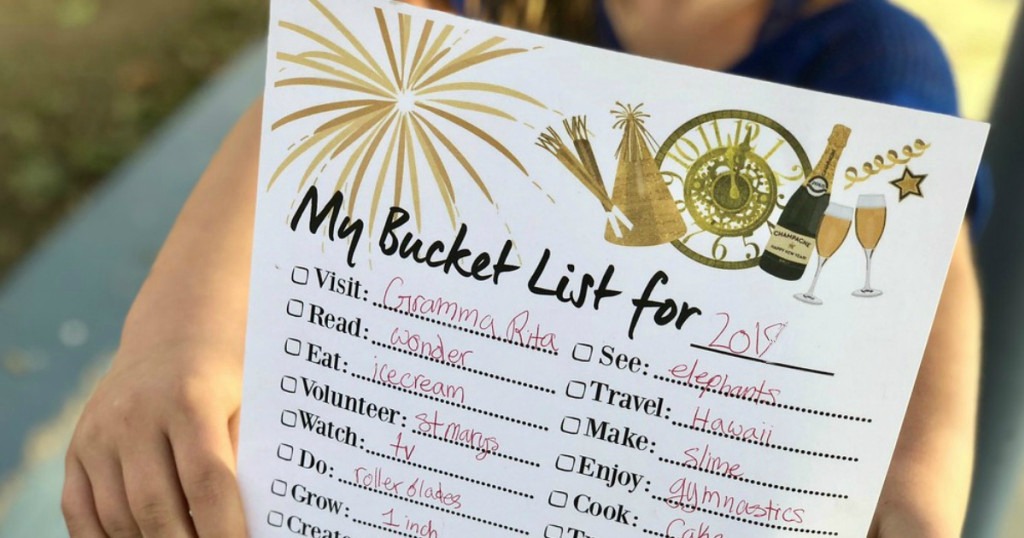 10 11 12 1
CHAMPAGNE
HAPPY NEW YEAR!
My Bucket List for 2019
Visit: Gramma Rita
Read: wonder
Eat: icecream
Volunteer: st marys
Watch: tv
Do: roller blades
Grow: 1 inch
Create
See: elephants
Travel: Hawaii
Make: slime
Enjoy: gymnastics
Cook: Cake